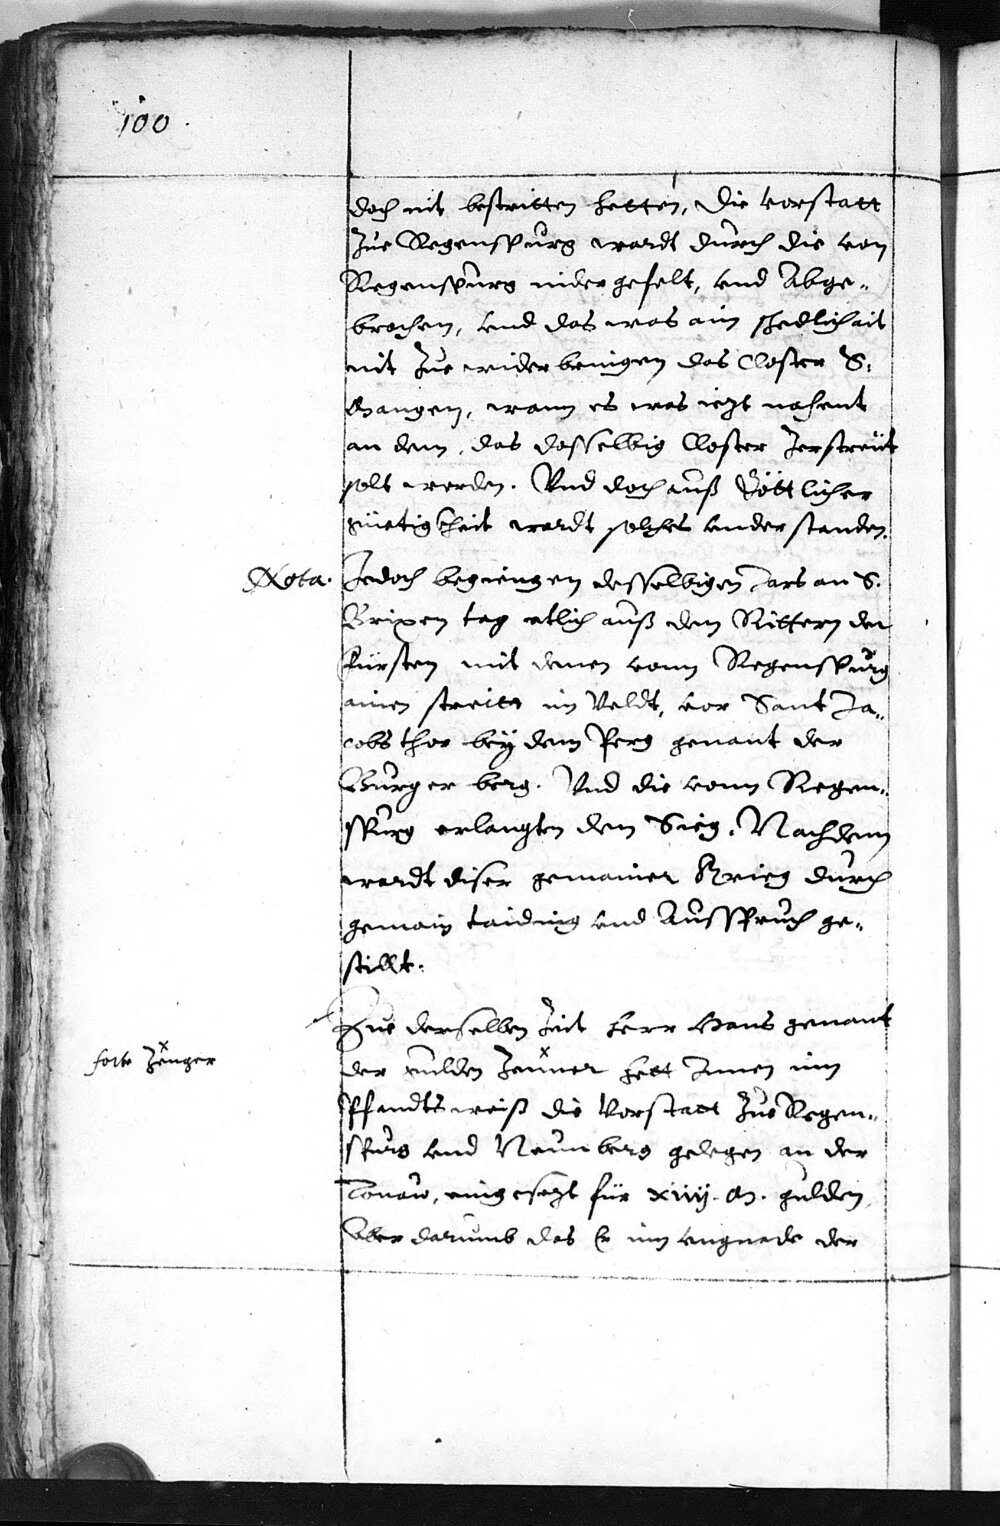 100.
doch nit bestritten hetten, Die vorstatt
Zue Regenspurg wardt durch die von
Regenspurg nider gefelt, vnd Abge-
brochen, vnd das was ain schedlichait
nit Zue widerbringen das Closter S.
Mangen, wann es was ietzt nahent
an dem, das dasselbig Closter Zerstreüt
solt werden. Vnd doch auß Göttlicher
güetigkheit wardt solches vnderstanden.
Nota. Jedoch begiengen desselbigen Jars an S.
Brixen tag etlich auß den Rittern der
Fürsten mit denen vonn Regenspurg
ainen streitt im Veldt, vor Sant Ja-
cobs thor bey dem Perg genant der
Burger berg. Vnd die vonn Regen-
spurg erlangten den Sieg. Nachdem
wardt diser gemainer Krieg durch
gemain taiding vnd Ausspruch ge-
stillt.
Zue derselben Zeit herr Hans genant
forte Zenger
der gulden Zeuner hett Innen inn
Pfandtsweiß die Vorstatt Zue Regen-
spurg vnd Neunberg gelegen an der
Tonaw, eingesetzt für xiiij. M. gulden,
Aber darumb das Er inn vngnade der